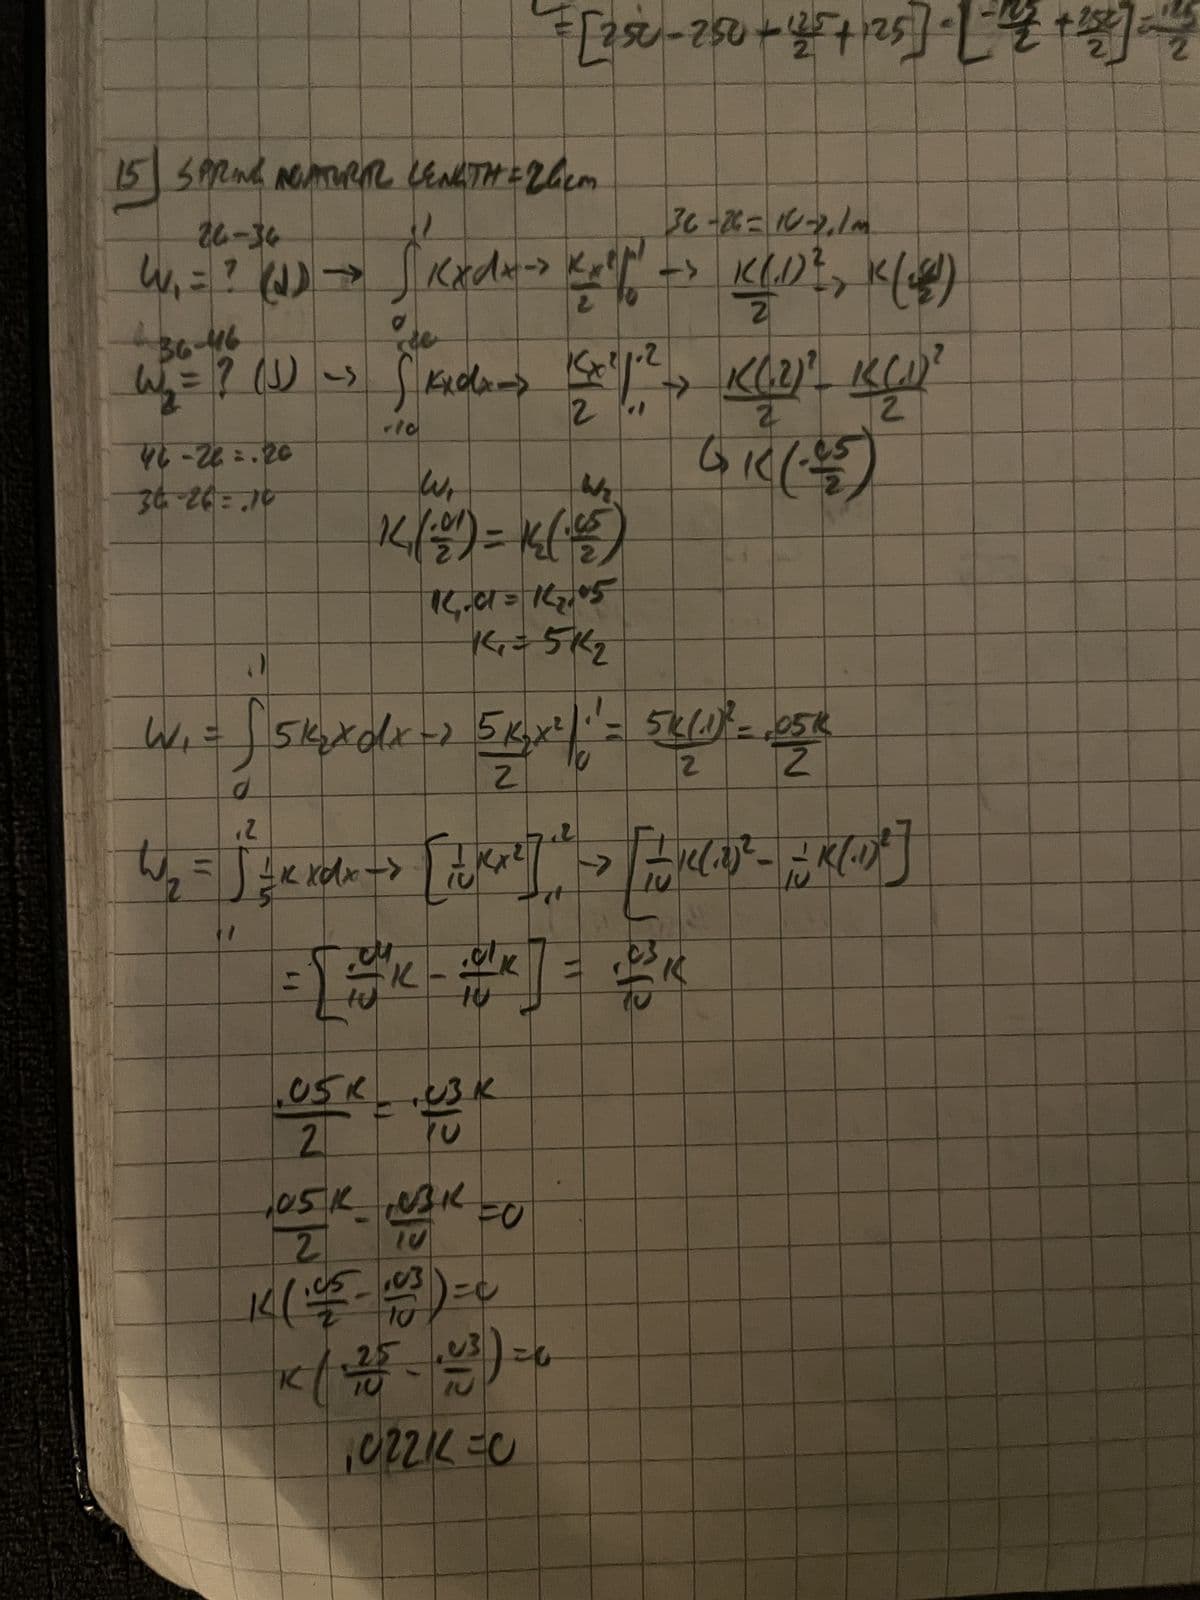 = [250 - 250 + 125/2 + 125] - [-125/2 + 250/2] = 125/2
15] SPRING NATURAL LENGTH = 26cm
26-36
36-26 = 10 -> .1m
W₁ = ? (J) → ∫₀^.1 Kxdx → Kx²/2 |₀^.1 → K(.1)²/2 → K(.01/2)
36-46
W₂ = ? (J) → ∫.10^.20 Kxdx → Kx²/2 |.1^.2 → K(.2)²/2 - K(.1)²/2
46 - 26 = .20
↳ K(.05/2)
36 - 26 = .10
W₁ W₂
K₁(.01/2) = K₂(.05/2)
K₁.01 = K₂.05
K₁ = 5K₂
W₁ = ∫₀^.1 5K₂xdx → 5K₂x²/2 |₀^.1 = 5K(.1)²/2 = .05K/2
W₂ = ∫.1^.2 1/5 K xdx → [1/10 Kx²].1^.2 → [1/10 K(.2)² - 1/10 K(.1)²]
= [.04/10 K - .01/10 K] = .03/10 K
.05K/2 = .03K/10
.05K/2 - .03K/10 = 0
K(.05/2 - .03/10) = 0
K(.25/10 - .03/10) = 0
.022K = 0